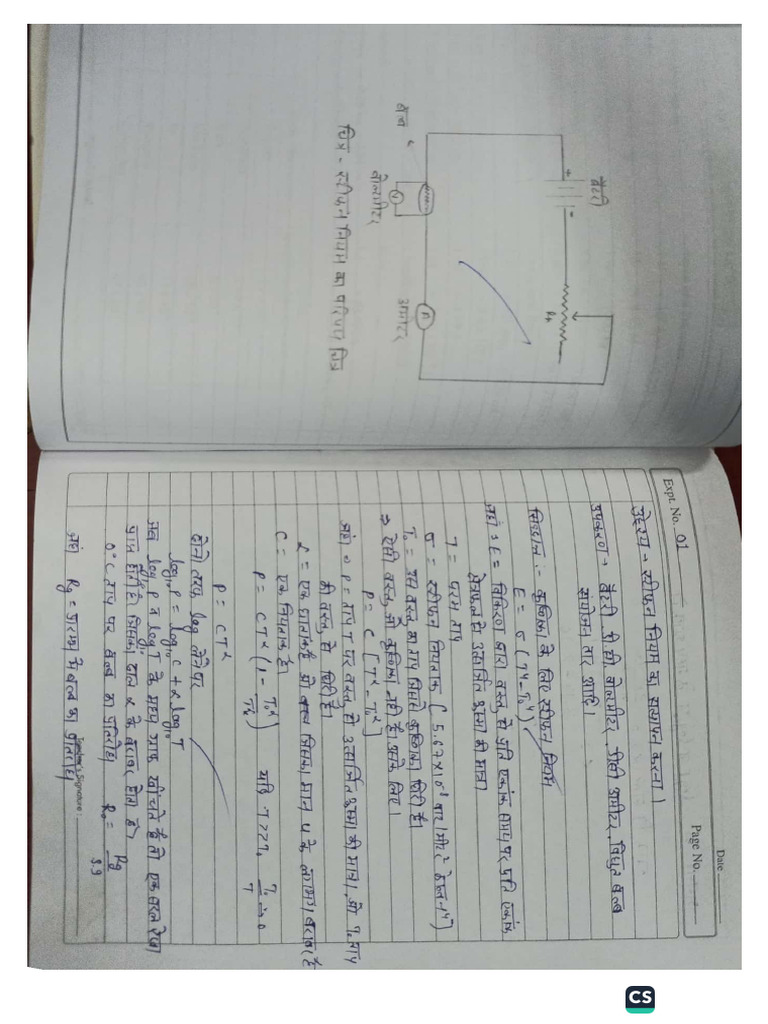 बैटरी
+
-
Rh
बल्ब
V
वोल्टमीटर
A
अमीटर
चित्र - स्टीफन नियम का परिपथ चित्र
Date
Expt. No. 01
Page No.
उद्देश्य - स्टीफन नियम का सत्यापन करना।
उपकरण - बैटरी, डी सी वोल्टमीटर, डीसी अमीटर, विधुत बल्ब
संयोजन तार आदि।
सिद्धान्त :- कृष्णिका के लिए स्टीफन नियम
E = σ (T⁴-T₀⁴)
जहाँ : E = विकिरण द्वारा वस्तु से प्रति एकांक समय पर प्रति एकांक
क्षेत्रफल से उत्सर्जित ऊष्मा की मात्रा
T = परम ताप
σ = स्टीफन नियतांक (5.67×10⁸ वाट/मीटर
T₀ = उस वस्तु का ताप जिससे कृष्णिका घिरी है।
⇒ ऐसी वस्तु जो कृष्णिका नहीं है। उसके लिए।
P = C [T^α - T₀^α]
जहां P = ताप T पर वस्तु से उत्सर्जित ऊष्मा की मात्रा, जो T₀ ताप
की वस्तु से घिरी है।
α = एक घातांक है जिसका मान 4 के लगभग बराबर है
C = एक नियतांक है।
P = CT^α (1 - T₀^α/T^α) यदि T>>T₀ T₀/T ≈ 0
P = CT^α
दोनो तरफ log लेने पर
log₁₀P = log₁₀C + α log₁₀T
अब log₁₀P व log₁₀T के मध्य ग्राफ खींचते है तो एक सरल रेखा
प्राप्त होती है, जिसका ढाल α के बराबर होता है।
0°C ताप पर बल्ब का प्रतिरोध R₀ = Rg/3.9
जहां Rg = प्रारम्भ में बल्ब का प्रतिरोध
Teacher's Signature :
CS